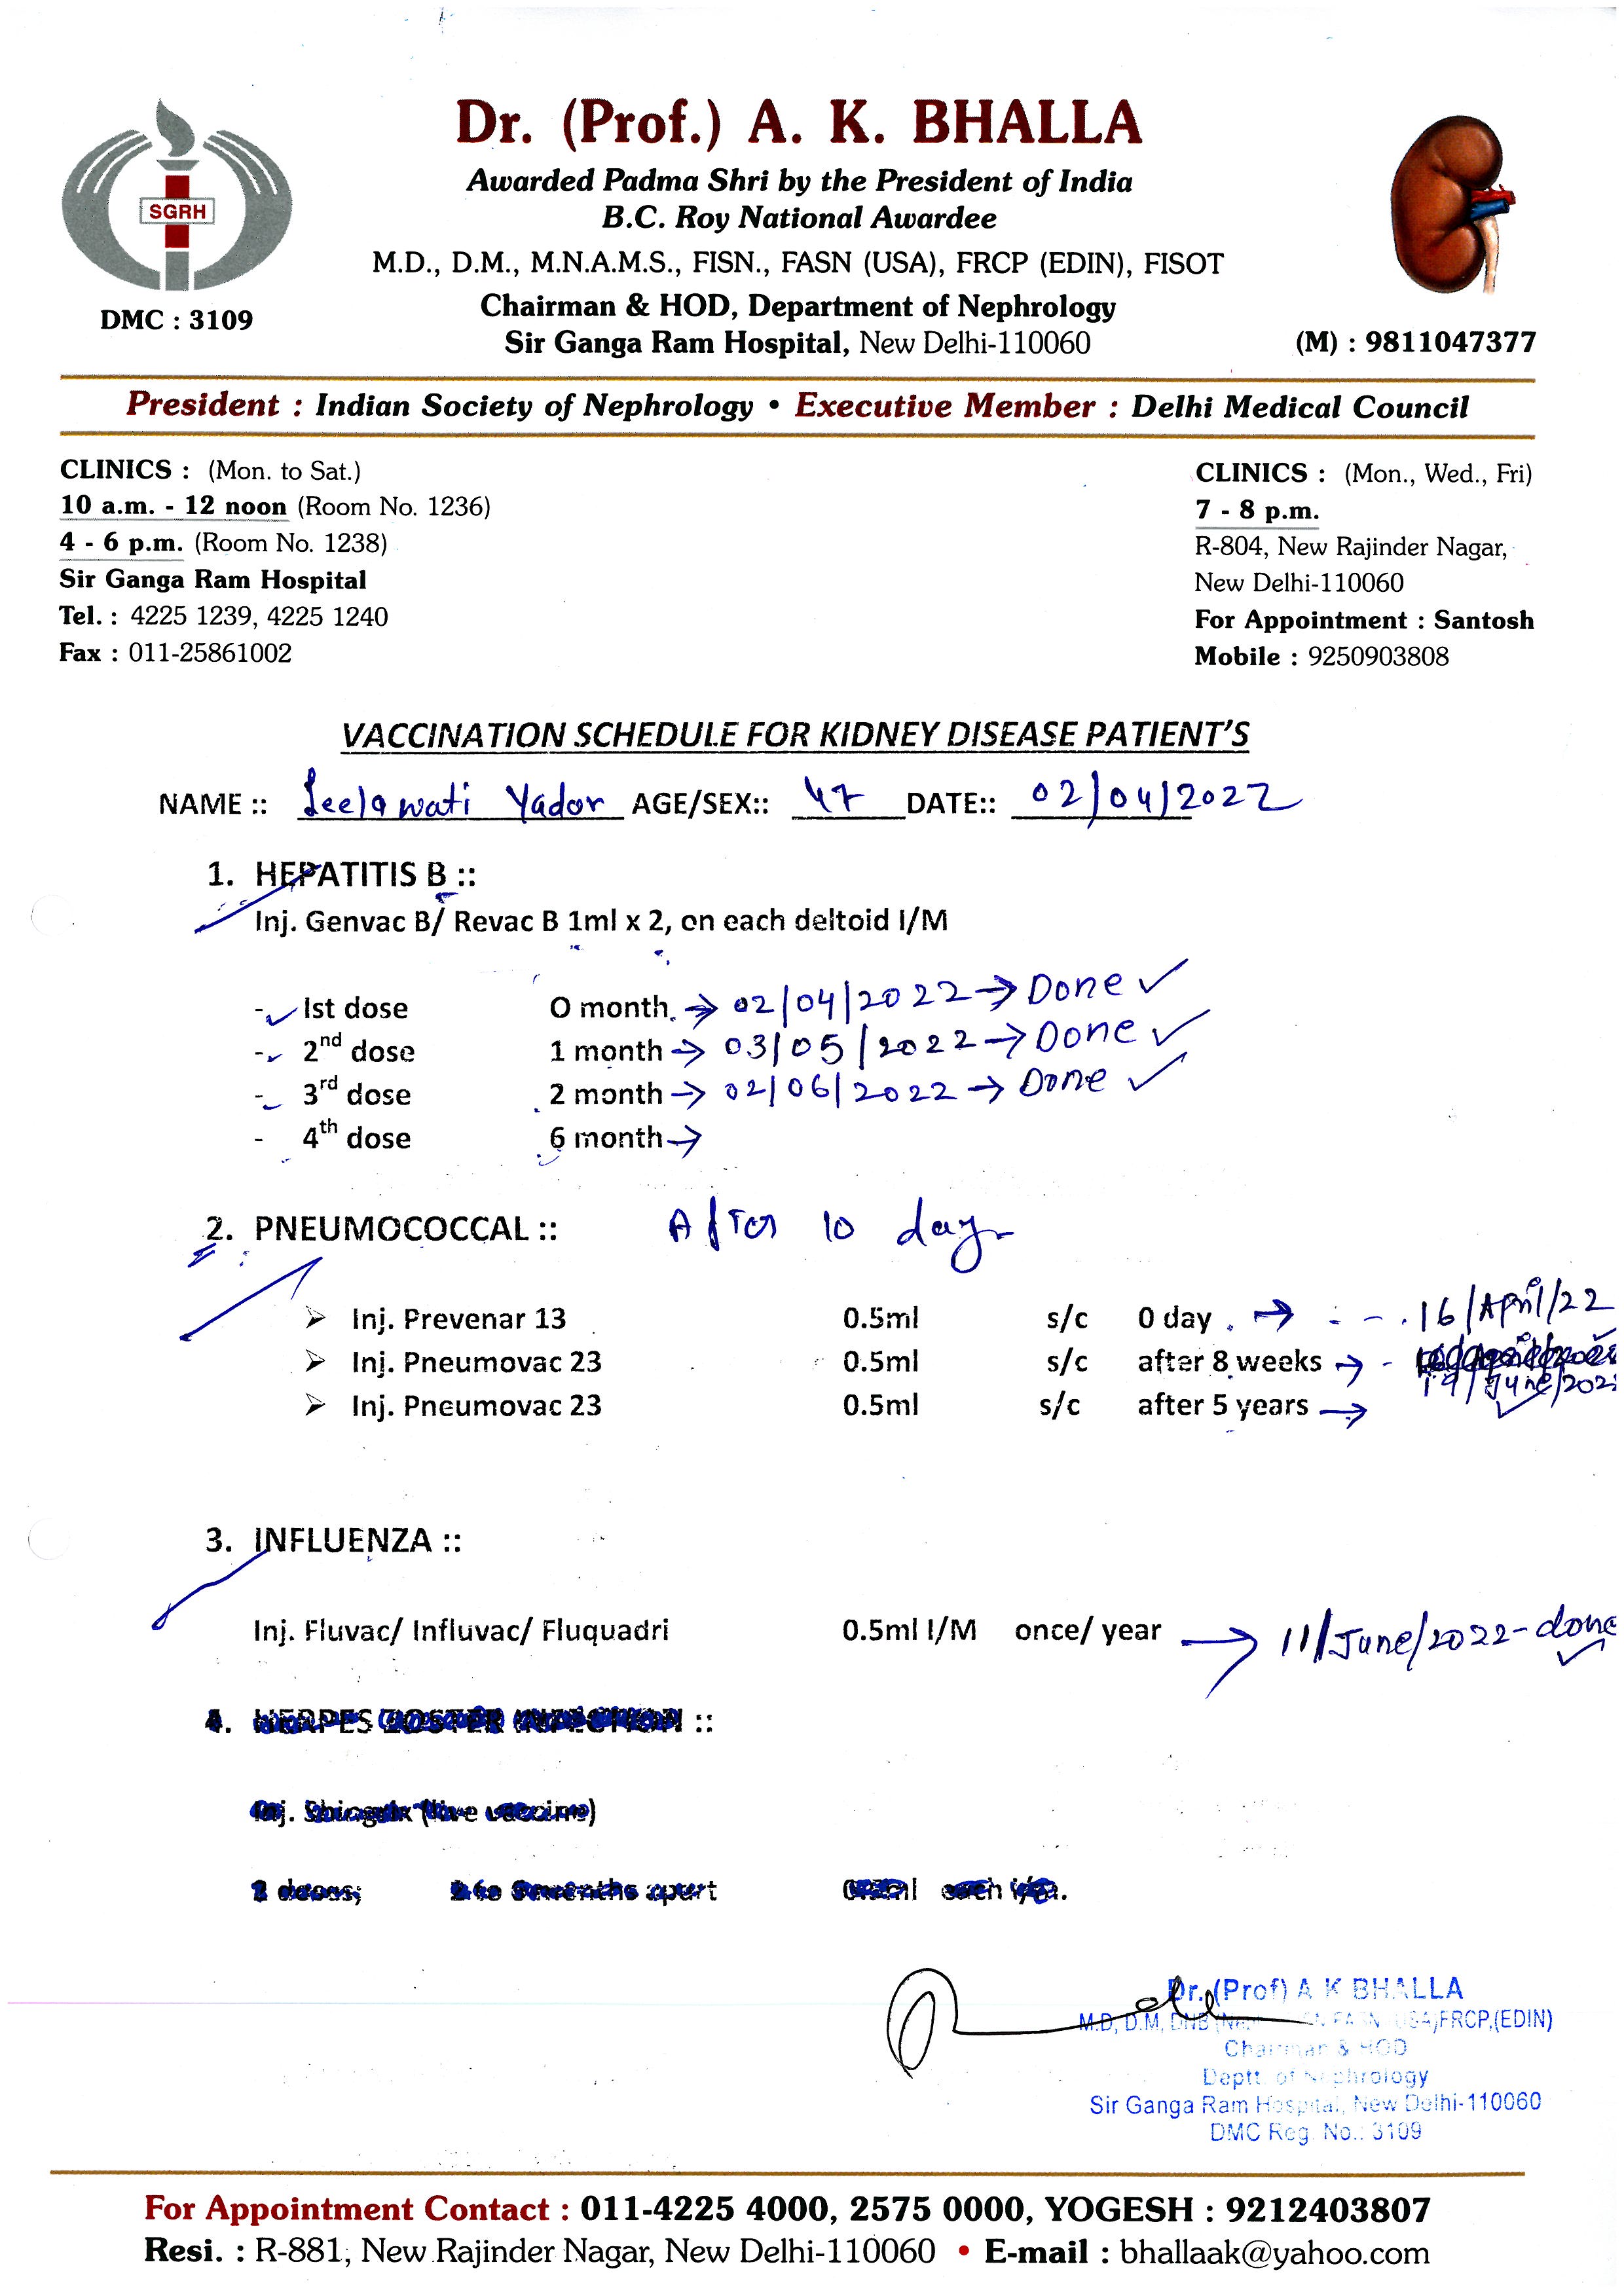 Dr. (Prof.) A. K. BHALLA
Awarded Padma Shri by the President of India
B.C. Roy National Awardee
M.D., D.M., M.N.A.M.S., FISN., FASN (USA), FRCP (EDIN), FISOT
Chairman & HOD, Department of Nephrology
Sir Ganga Ram Hospital, New Delhi-110060
SGRH
DMC : 3109
(M) : 9811047377
President : Indian Society of Nephrology • Executive Member : Delhi Medical Council
CLINICS : (Mon. to Sat.)
10 a.m. - 12 noon (Room No. 1236)
4 - 6 p.m. (Room No. 1238)
Sir Ganga Ram Hospital
Tel. : 4225 1239, 4225 1240
Fax : 011-25861002
CLINICS : (Mon., Wed., Fri)
7 - 8 p.m.
R-804, New Rajinder Nagar,
New Delhi-110060
For Appointment : Santosh
Mobile : 9250903808
VACCINATION SCHEDULE FOR KIDNEY DISEASE PATIENT'S
NAME :: Leelawati Yadav AGE/SEX:: 47 DATE:: 02/04/2022
1. HEPATITIS B ::
Inj. Genvac B/ Revac B 1ml x 2, on each deltoid I/M
- Ist dose O month. → 02/04/2022 → Done ✓
- 2nd dose 1 month → 03/05/2022 → Done ✓
- 3rd dose 2 month → 02/06/2022 → Done ✓
- 4th dose 6 month →
2. PNEUMOCOCCAL :: After 10 day
➢ Inj. Prevenar 13 0.5ml s/c 0 day → 16/April/22
➢ Inj. Pneumovac 23 0.5ml s/c after 8 weeks →
19/June/202
➢ Inj. Pneumovac 23 0.5ml s/c after 5 years →
3. INFLUENZA ::
Inj. Fluvac/ Influvac/ Fluquadri 0.5ml I/M once/ year → 11/June/2022 - done ✓
4. HERPES ZOSTER INFECTION ::
Inj. Shingrix (live vaccine)
2 doses; apart each
Dr. (Prof) A K BHALLA
M.D, D.M, DNB FRCP,(EDIN)
Chairman & HOD
Deptt. of Nephrology
Sir Ganga Ram Hospital, New Delhi-110060
DMC Reg. No.: 3109
For Appointment Contact : 011-4225 4000, 2575 0000, YOGESH : 9212403807
Resi. : R-881, New Rajinder Nagar, New Delhi-110060 • E-mail : bhallaak@yahoo.com